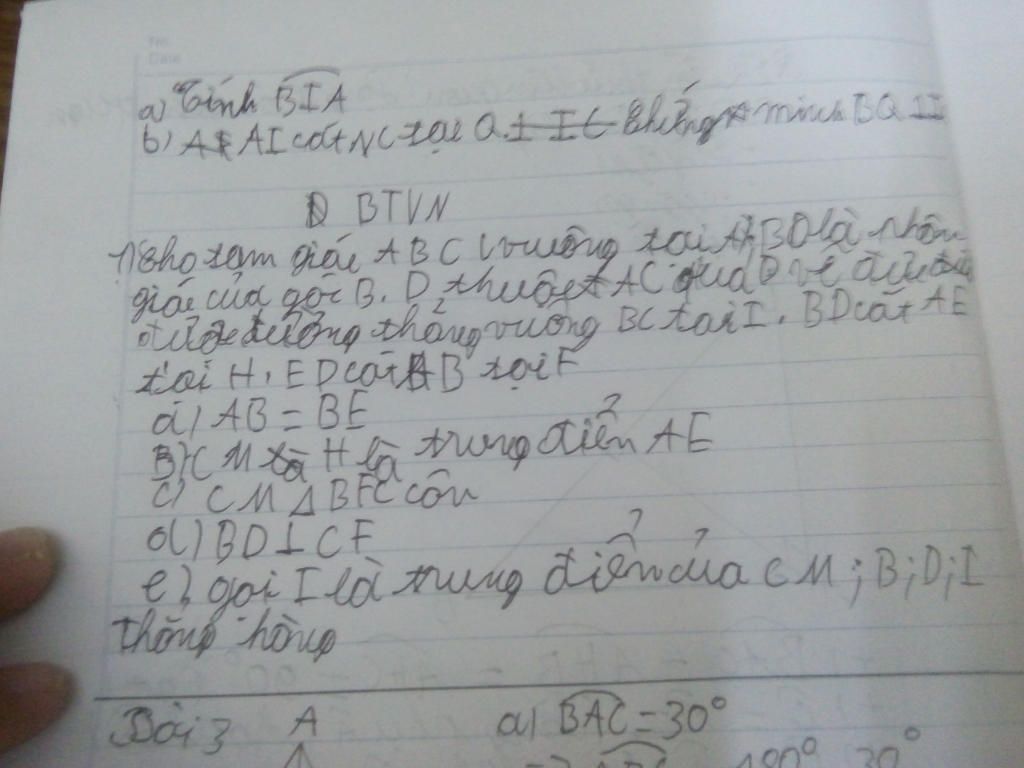 No.
Date
a) Tính BIA
b) AI cắt NC tại Q. Chứng minh BQ ⊥
BTVN
1) Cho tam giác ABC vuông tại A, BD là phân
giác của góc B. D thuộc AC qua D vẽ
đường thẳng vuông BC tại I. BD cắt AE
tại H, ED cắt AB tại F
a) AB = BE
B) CM H là trung điển AE
c) CM Δ BFC côn
d) BD ⊥ CF
e) gọi I là trung điển của CM; B; D; I
thằng hòng
Bài 3 A a) BAC = 30°
180° 30°